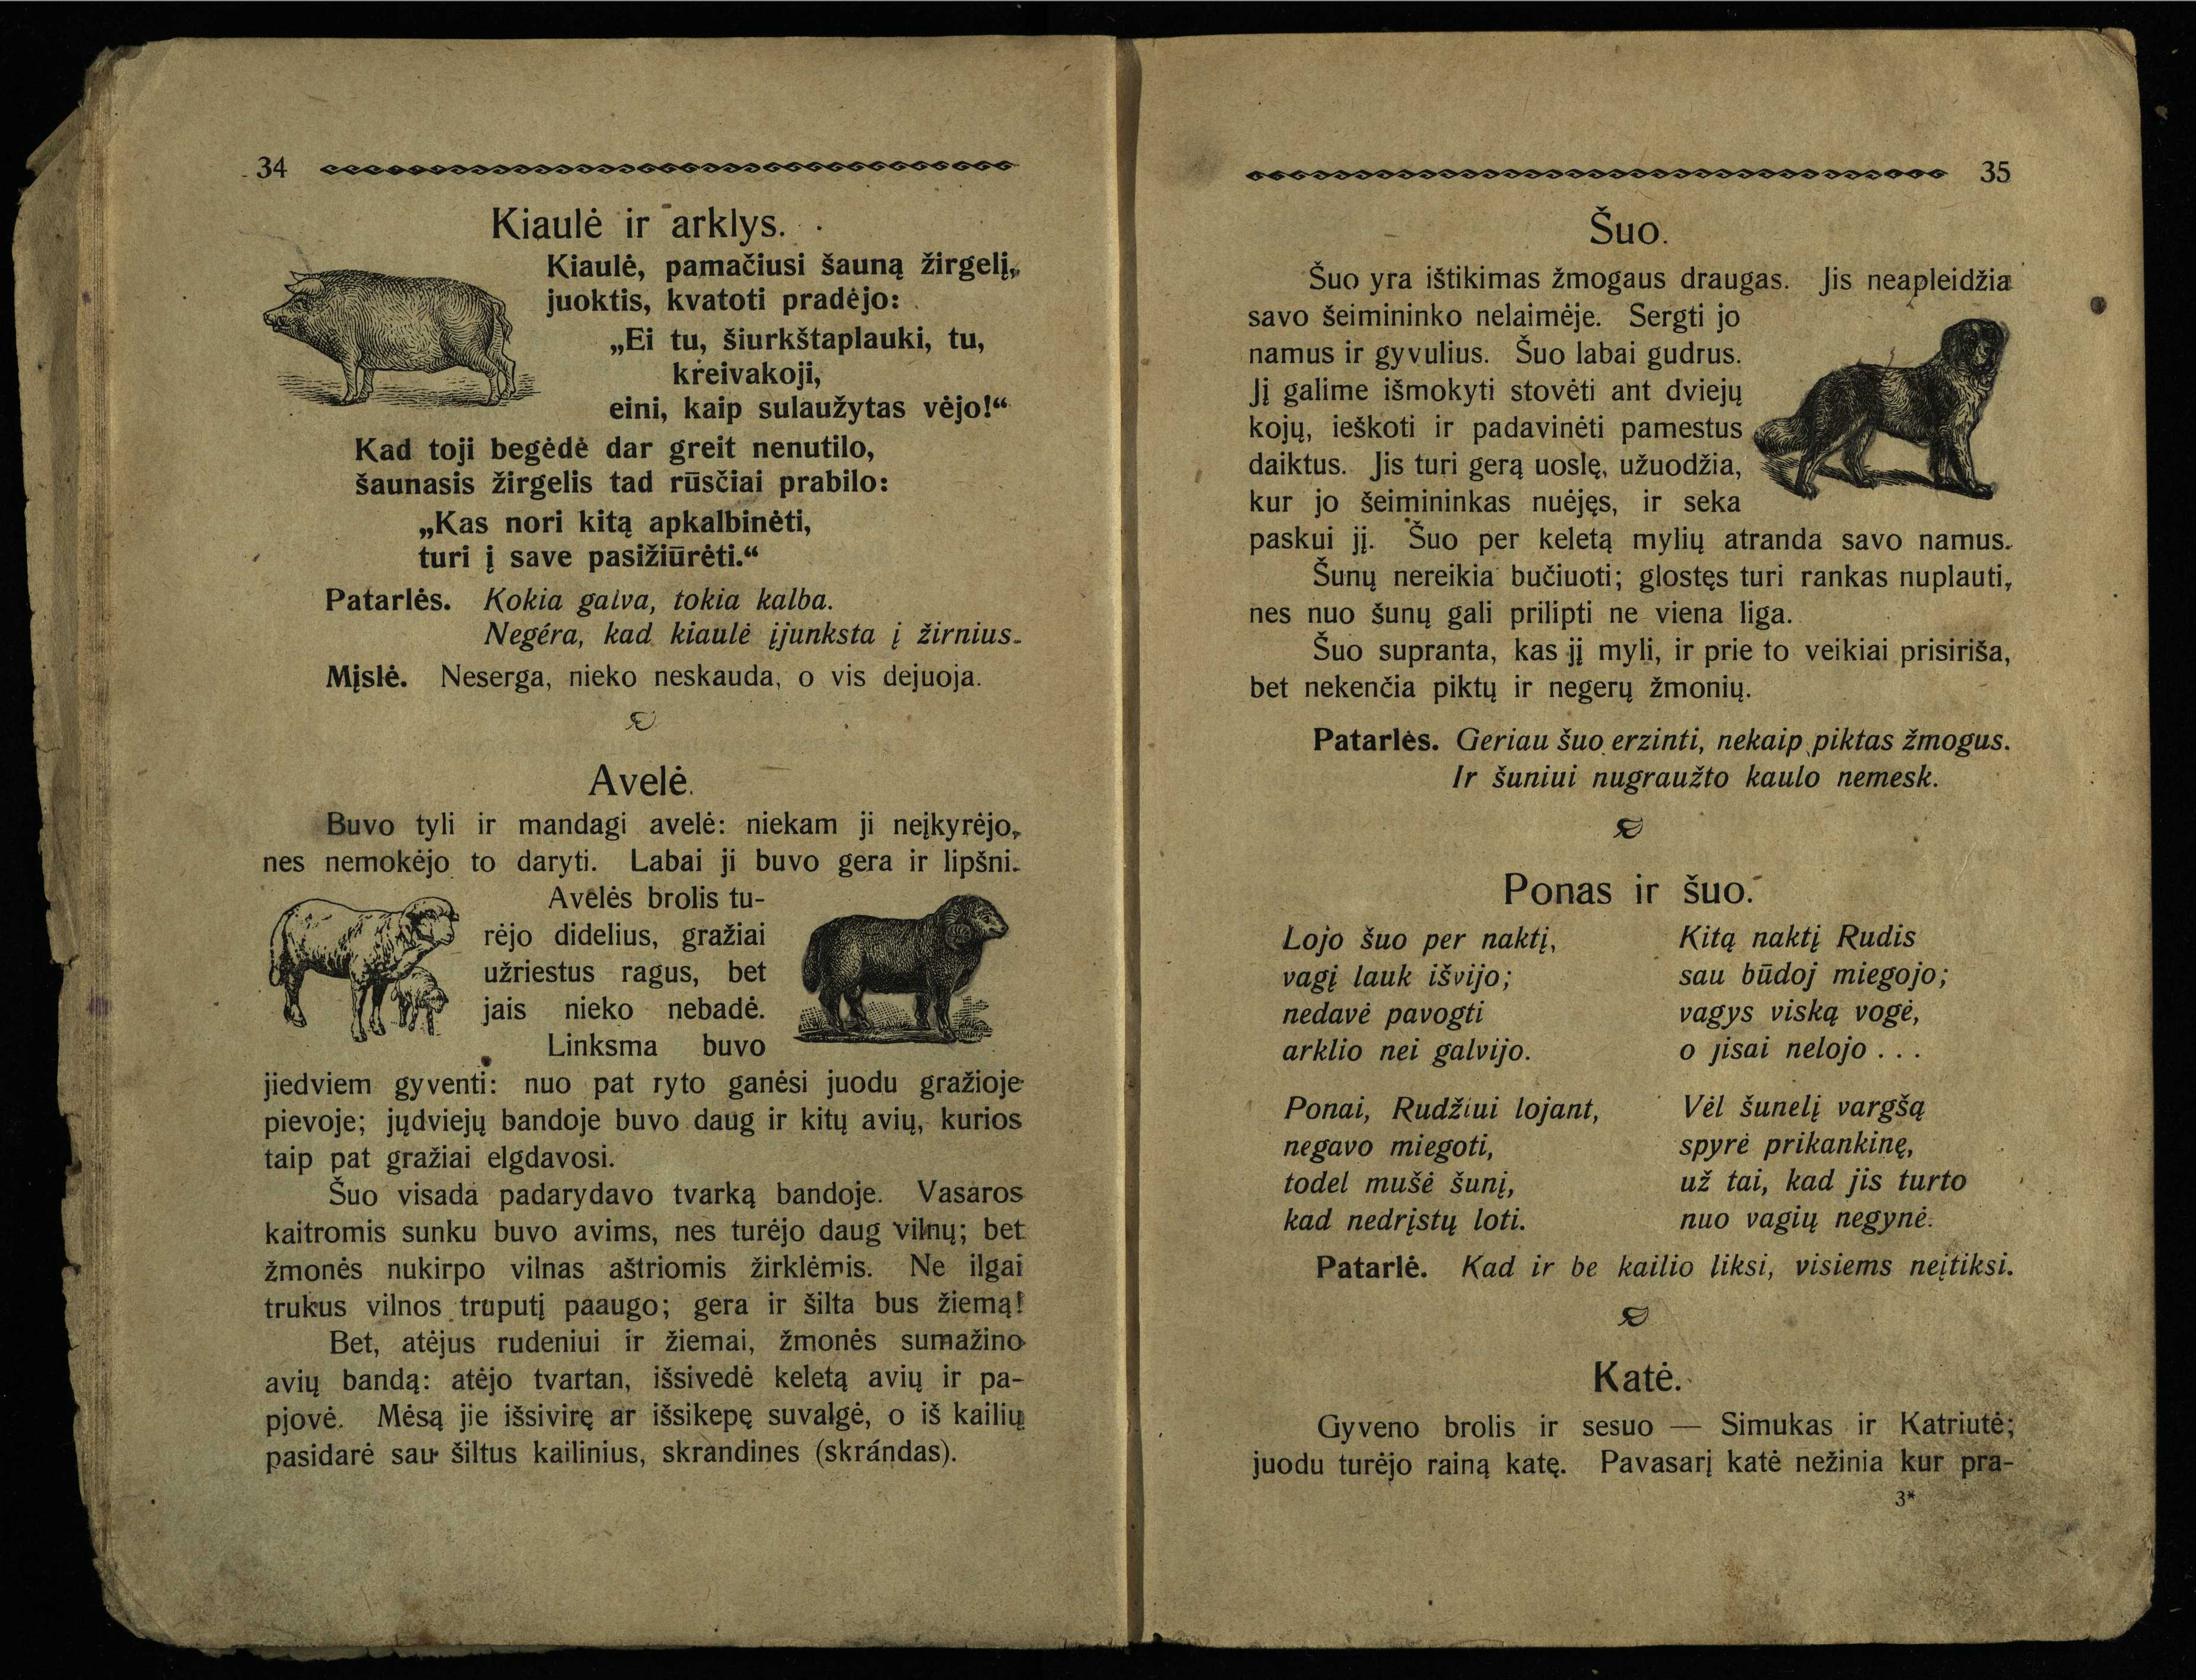 34
Kiaulė ir arklys.
Kiaulė, pamačiusi šauną žirgelį,
juoktis, kvatoti pradėjo:
„Ei tu, šiurkštaplauki, tu,
kreivakoji,
eini, kaip sulaužytas vėjo!“
Kad toji begėdė dar greit nenutilo,
šaunasis žirgelis tad rūsčiai prabilo:
„Kas nori kitą apkalbinėti,
turi į save pasižiūrėti.“
Patarlės. Kokia galva, tokia kalba.
Negéra, kad kiaulė įjunksta į žirnius.
Mįslė. Neserga, nieko neskauda, o vis dejuoja.
Avelė.
Buvo tyli ir mandagi avelė: niekam ji neįkyrėjo,
nes nemokėjo to daryti. Labai ji buvo gera ir lipšni.
Avelės brolis tu-
rėjo didelius, gražiai
užriestus ragus, bet
jais nieko nebadė.
Linksma buvo
jiedviem gyventi: nuo pat ryto ganėsi juodu gražioje
pievoje; jųdviejų bandoje buvo daug ir kitų avių, kurios
taip pat gražiai elgdavosi.
Šuo visada padarydavo tvarką bandoje. Vasaros
kaitromis sunku buvo avims, nes turėjo daug vilnų; bet
žmonės nukirpo vilnas aštriomis žirklėmis. Ne ilgai
trukus vilnos truputį paaugo; gera ir šilta bus žiemą!
Bet, atėjus rudeniui ir žiemai, žmonės sumažino
avių bandą: atėjo tvartan, išsivedė keletą avių ir pa-
pjovė. Mėsą jie išsivirę ar išsikepę suvalgė, o iš kailių
pasidarė sau šiltus kailinius, skrandines (skrándas).
35
Šuo.
Šuo yra ištikimas žmogaus draugas. Jis neapleidžia
savo šeimininko nelaimėje. Sergti jo
namus ir gyvulius. Šuo labai gudrus.
Jį galime išmokyti stovėti ant dviejų
kojų, ieškoti ir padavinėti pamestus
daiktus. Jis turi gerą uoslę, užuodžia,
kur jo šeimininkas nuėjęs, ir seka
paskui jį. Šuo per keletą mylių atranda savo namus.
Šunų nereikia bučiuoti; glostęs turi rankas nuplauti,
nes nuo šunų gali prilipti ne viena liga.
Šuo supranta, kas jį myli, ir prie to veikiai prisiriša,
bet nekenčia piktų ir negerų žmonių.
Patarlės. Geriau šuo erzinti, nekaip piktas žmogus.
Ir šuniui nugraužto kaulo nemesk.
Ponas ir šuo.
Lojo šuo per naktį,
vagį lauk išvijo;
nedavė pavogti
arklio nei galvijo.
Ponai, Rudžiui lojant,
negavo miegoti,
todel mušė šunį,
kad nedrįstų loti.
Kitą naktį Rudis
sau būdoj miegojo;
vagys viską vogė,
o jisai nelojo . . .
Vėl šunelį vargšą
spyrė prikankinę,
už tai, kad jis turto
nuo vagių negynė.
Patarlė. Kad ir be kailio liksi, visiems neįtiksi.
Katė.
Gyveno brolis ir sesuo — Simukas ir Katriutė;
juodu turėjo rainą katę. Pavasarį katė nežinia kur pra-
3*